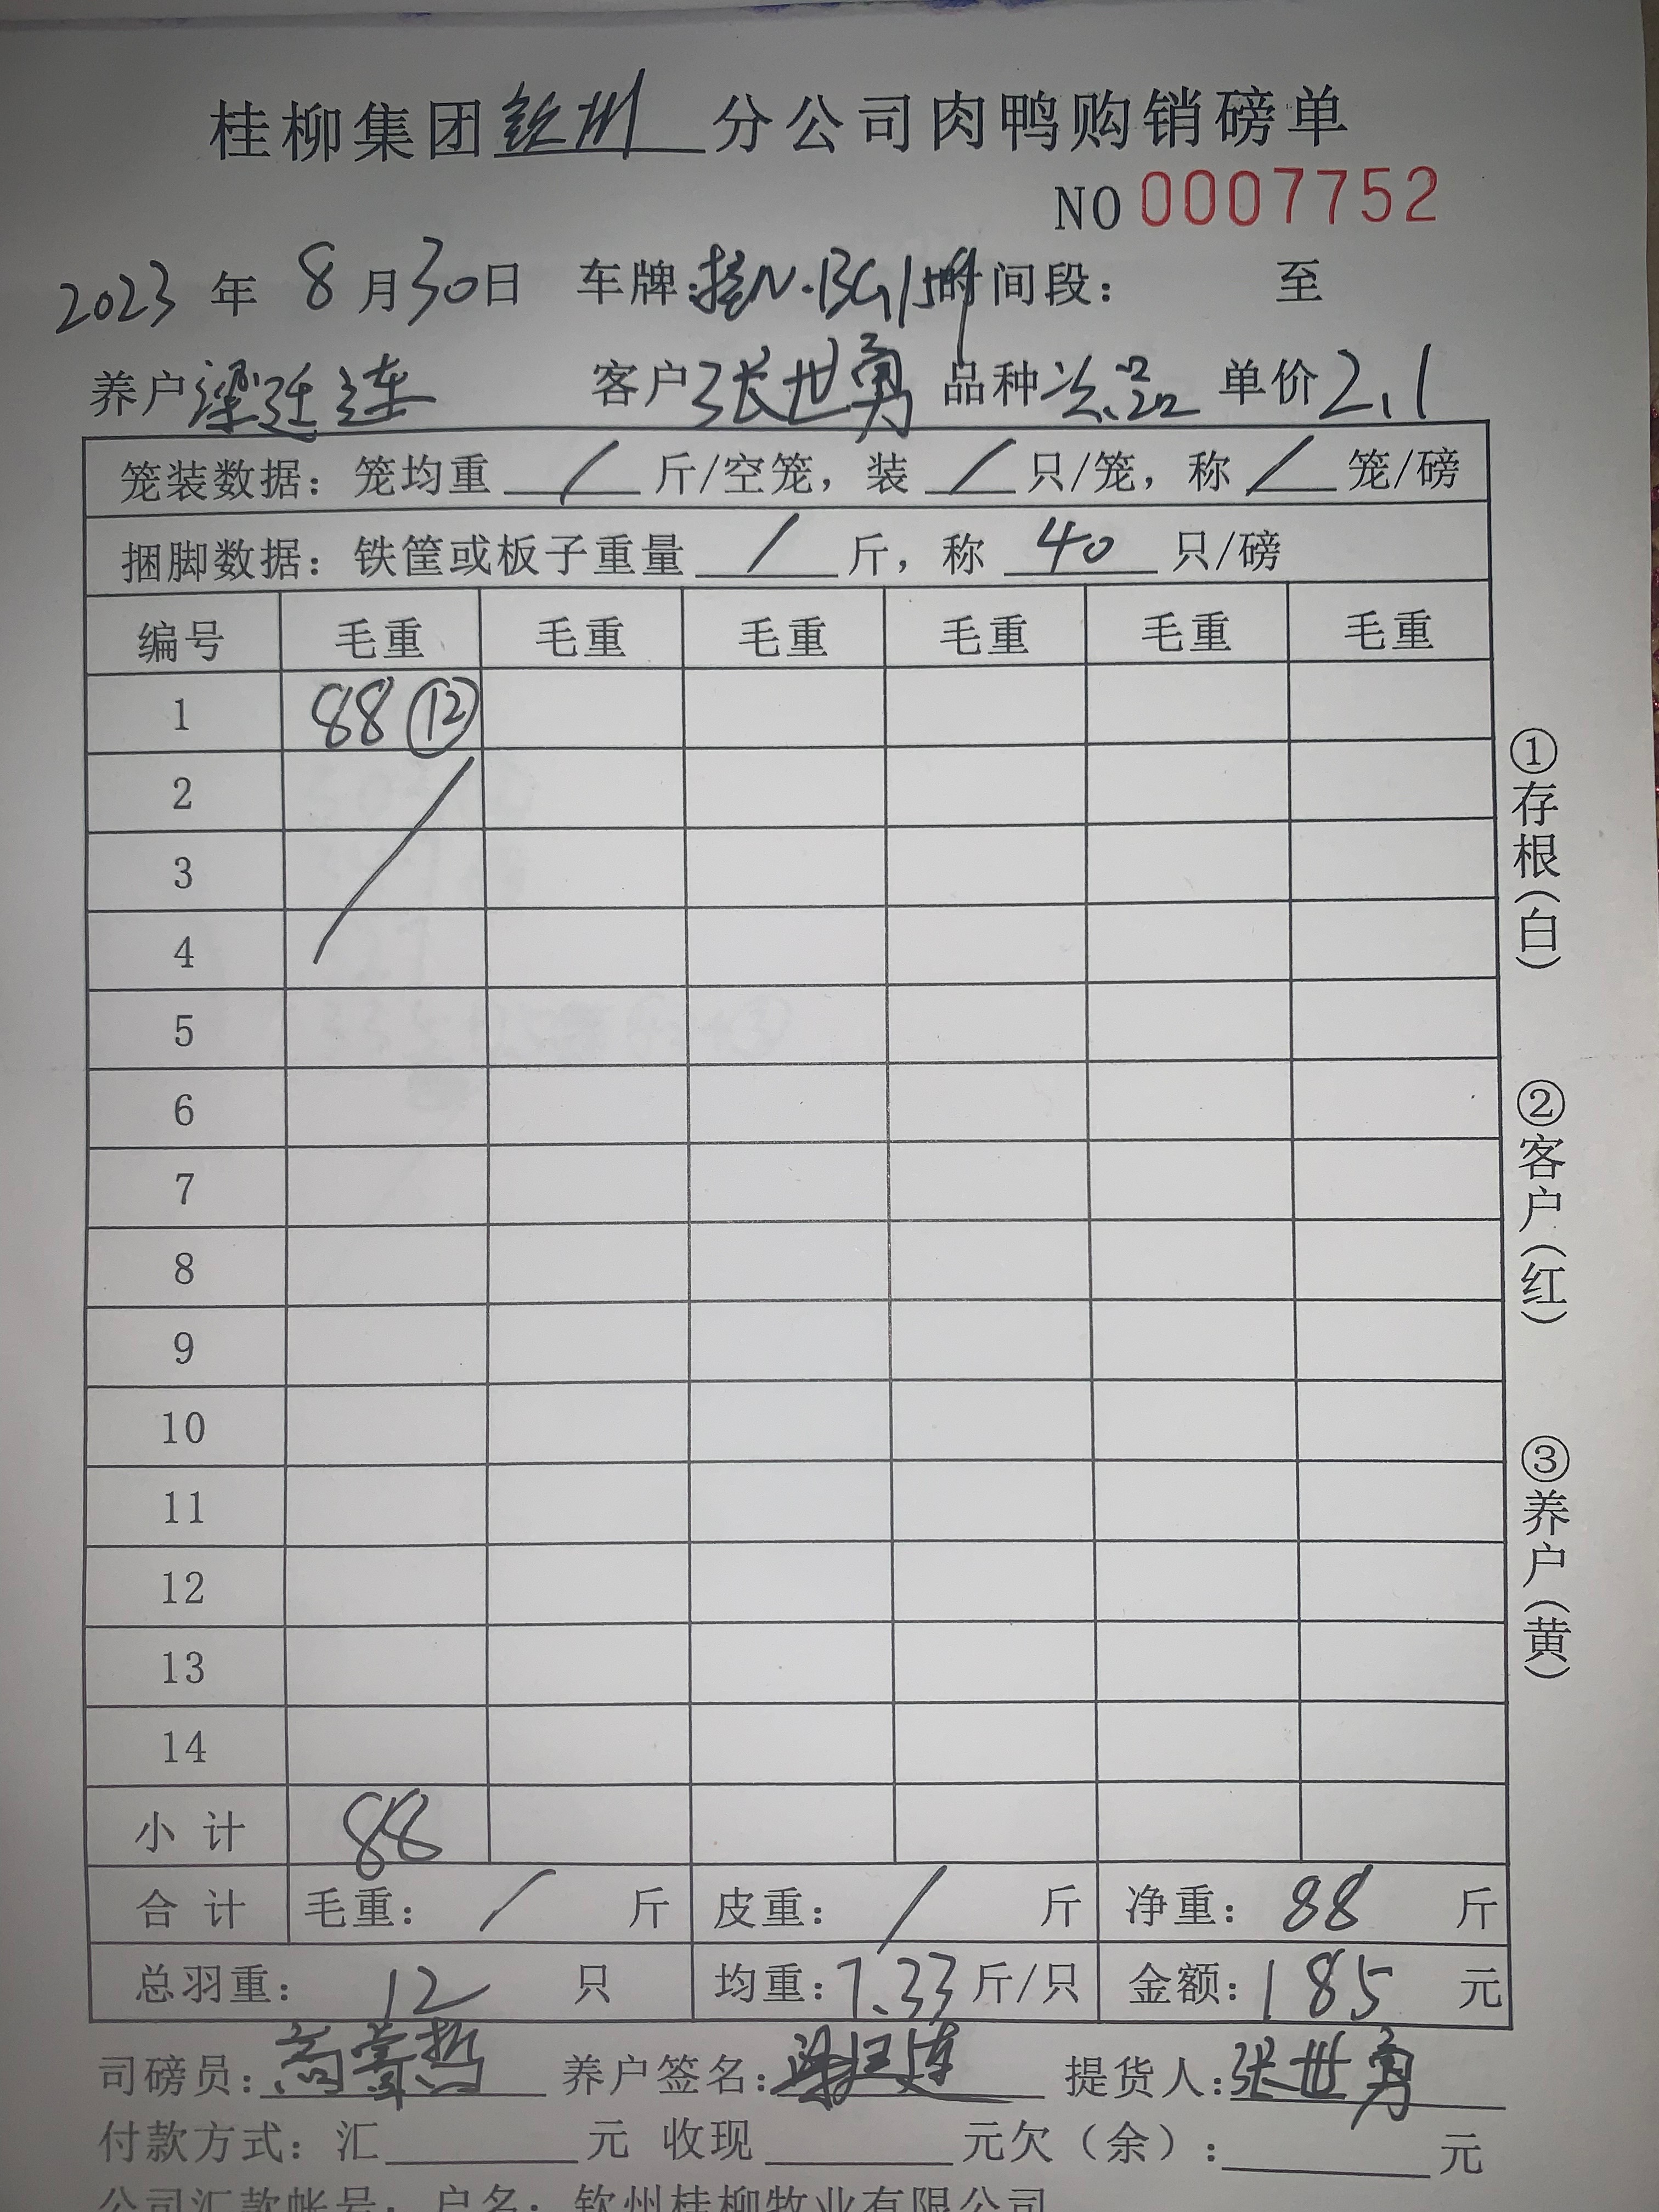 桂柳集团钦州分公司肉鸭购销磅单
NO 0007752
2023年8月30日 车牌:桂N·BG15 时间段: 至
养户梁廷连 客户张世勇 品种次品 单价2.1
笼装数据: 笼均重 / 斤/空笼, 装 / 只/笼, 称 / 笼/磅
捆脚数据: 铁筐或板子重量 / 斤, 称 40 只/磅
编号 毛重 毛重 毛重 毛重 毛重 毛重
1 88 ⑫
2
3
4
5
6
7
8
9
10
11
12
13
14
小计 88
合计 毛重: / 斤 皮重: / 斤 净重: 88 斤
总羽重: 12 只 均重: 7.33 斤/只 金额: 185 元
司磅员: 养户签名: 梁廷连 提货人: 张世勇
付款方式: 汇 元 收现 元欠(余): 元
公司汇款帐号: 户名: 钦州桂柳牧业有限公司
①存根(白)
②客户(红)
③养户(黄)